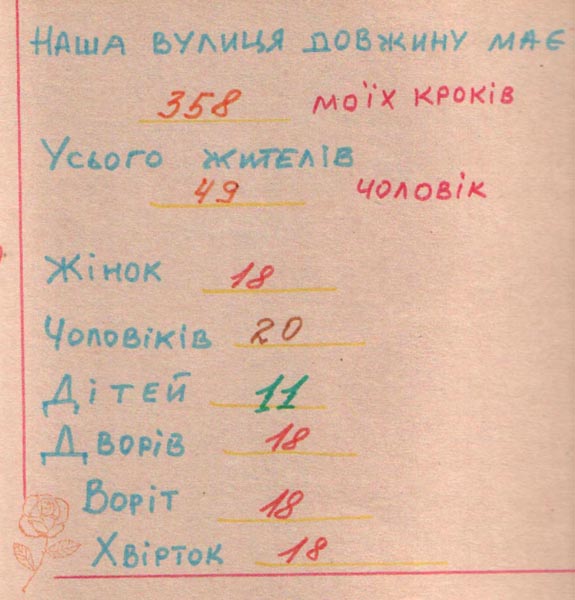 Наша вулиця довжину має
358 моїх кроків
Усього жителів
49 чоловік
Жінок 18
Чоловіків 20
Дітей 11
Дворів 18
Воріт 18
Хвірток 18